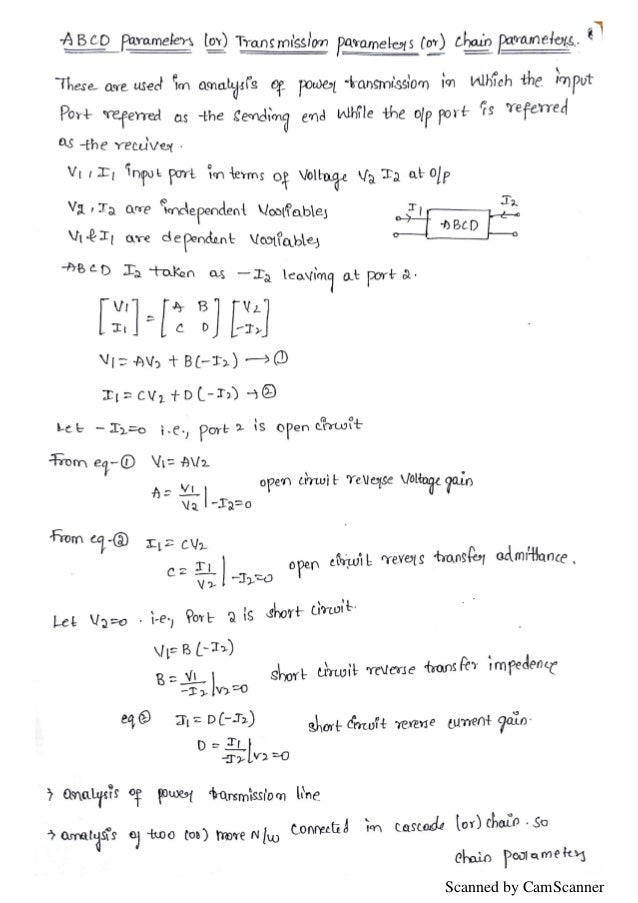 ABCD Parameters (or) Transmission parameters (or) chain parameters.
These are used in analysis of power transmission in which the input
Port referred as the sending end while the o/p port is referred
as the reciever.
V1, I1 input port in terms of Voltage V2 I2 at o/p
V2, I2 are independent Variables
V1 & I1 are dependent Variables
I1 ABCD I2
ABCD I2 taken as -I2 leaving at port 2.
[V1 I1] = [A B C D] [V2 -I2]
V1 = AV2 + B(-I2) → ①
I1 = CV2 + D(-I2) → ②
Let -I2=0 i.e., port 2 is open circuit
From eq-① V1 = AV2
A = V1/V2 | -I2=0 open circuit reverse Voltage gain
From eq-② I1 = CV2
C = I1/V2 | -I2=0 open circuit revers transfer admittance.
Let V2=0 . i.e, Port 2 is short circuit.
V1 = B(-I2)
B = V1/-I2 | V2=0 short circuit reverse transfer impedence
eq② I1 = D(-I2) short circuit reverse current gain.
D = I1/-I2 | V2=0
→ analysis of power transmission line
→ analysis of two (or) more N/w connected in cascade (or) chain. so
chain parameters
Scanned by CamScanner